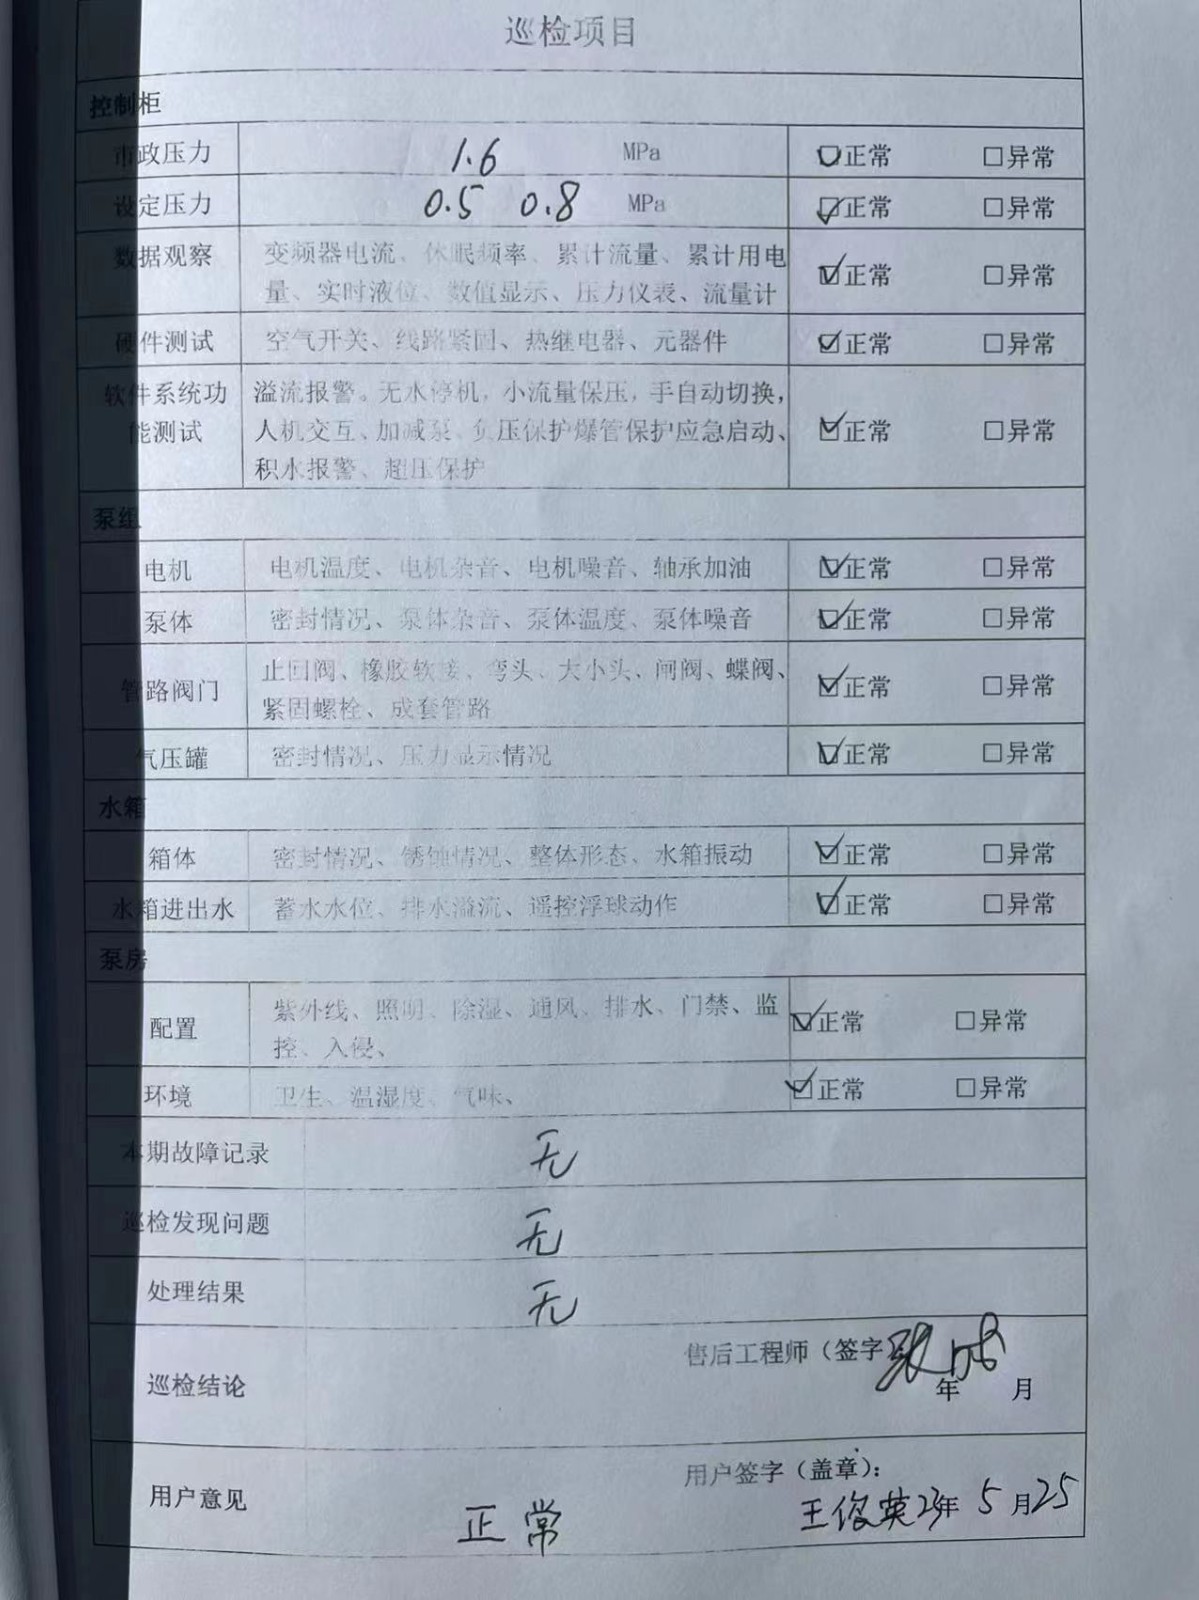 巡检项目
控制柜
市政压力 1.6 MPa ☑正常 □异常
设定压力 0.5 0.8 MPa ☑正常 □异常
数据观察 变频器电流、休眠频率、累计流量、累计用电
量、实时液位、数值显示、压力仪表、流量计 ☑正常 □异常
硬件测试 空气开关、线路紧固、热继电器、元器件 ☑正常 □异常
软件系统功 溢流报警。无水停机，小流量保压，手自动切换，
能测试 人机交互、加减泵、负压保护爆管保护应急启动、 ☑正常 □异常
积水报警、超压保护
泵组
电机 电机温度、电机杂音、电机噪音、轴承加油 ☑正常 □异常
泵体 密封情况、泵体杂音、泵体温度、泵体噪音 ☑正常 □异常
管路阀门 止回阀、橡胶软接、弯头、大小头、闸阀、蝶阀、
紧固螺栓、成套管路 ☑正常 □异常
气压罐 密封情况、压力显示情况 ☑正常 □异常
水箱
箱体 密封情况、锈蚀情况、整体形态、水箱振动 ☑正常 □异常
水箱进出水 蓄水水位、排水溢流、遥控浮球动作 ☑正常 □异常
泵房
配置 紫外线、照明、除湿、通风、排水、门禁、监
控、入侵、 ☑正常 □异常
环境 卫生、温湿度、气味、 ☑正常 □异常
本期故障记录 无
巡检发现问题 无
处理结果 无
售后工程师（签字
巡检结论 年 月
用户签字（盖章）：
用户意见 正常 王俊英 23年 5月25